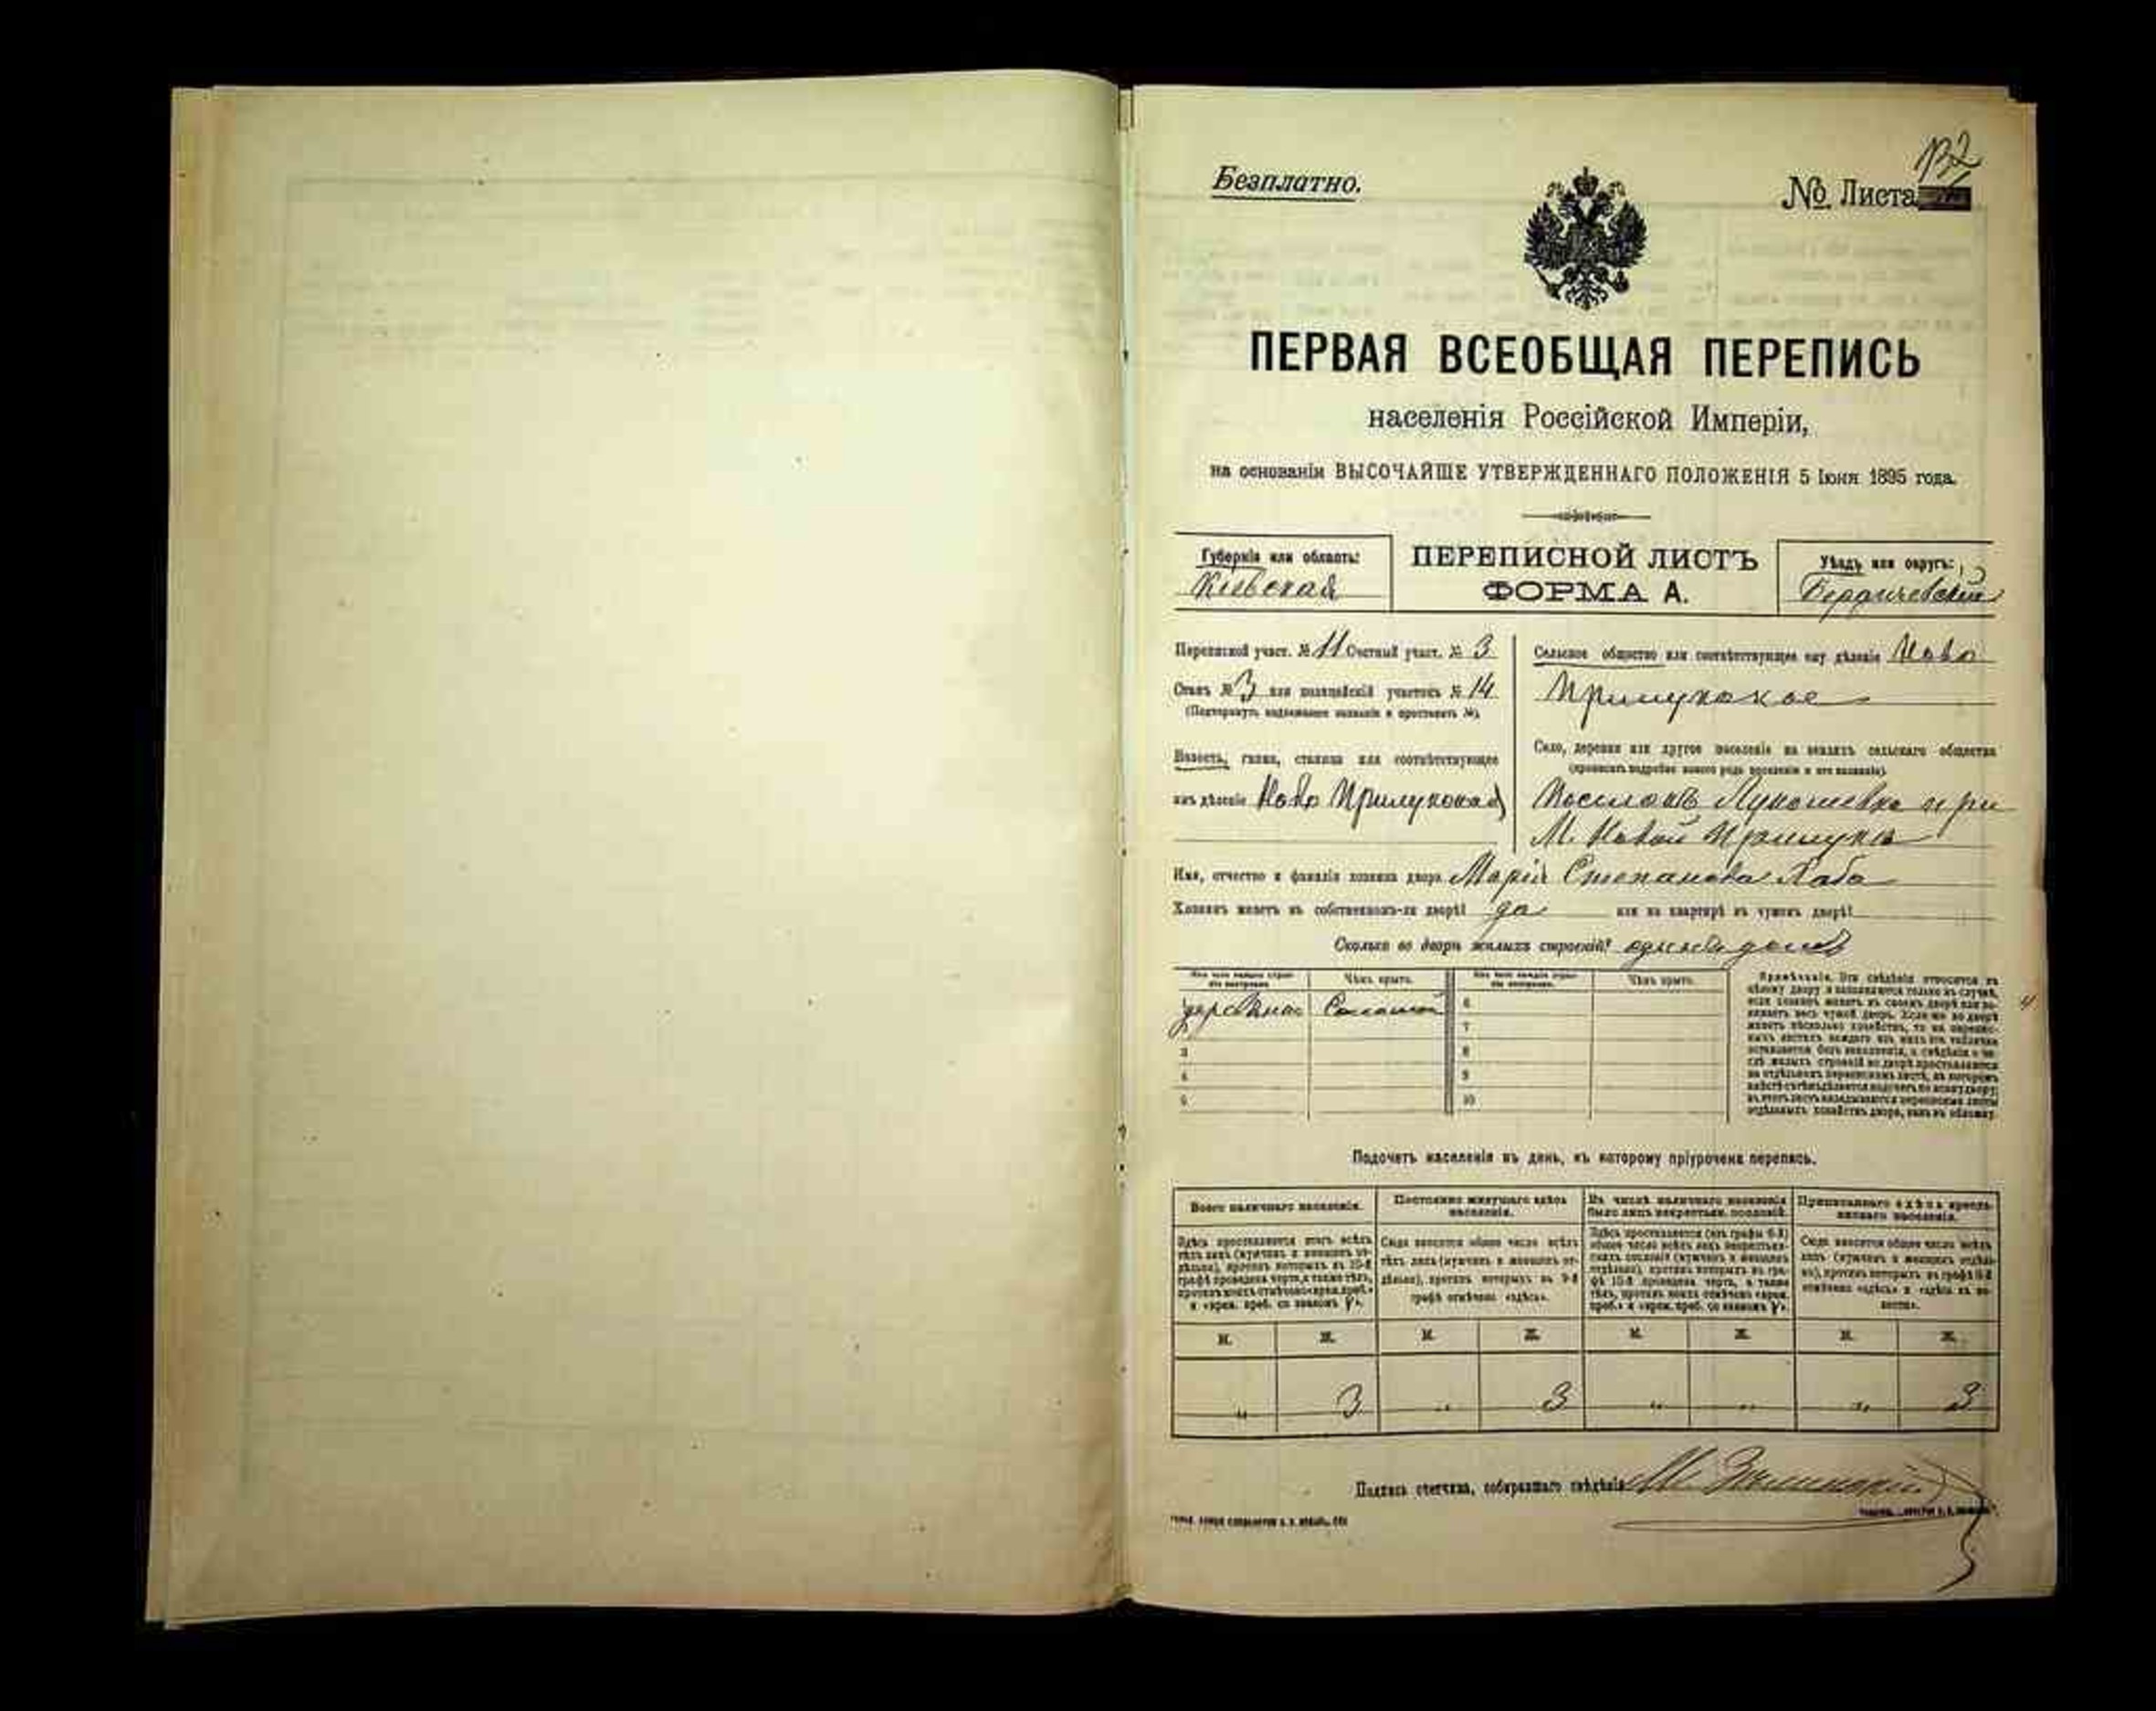 Безплатно.
№ Листа
132
ПЕРВАЯ ВСЕОБЩАЯ ПЕРЕПИСЬ
населенія Россійской Имперіи,
на основаніи ВЫСОЧАЙШЕ УТВЕРЖДЕННАГО ПОЛОЖЕНІЯ 5 Іюня 1895 года.
Губернія или область:
Кіевская
ПЕРЕПИСНОЙ ЛИСТЪ
ФОРМА А.
Уѣздъ или округъ:
Бердичевскій
Переписной участ. № 11 Счетный участ. № 3
Станъ № 3 или полицейскій участокъ № 14
(Подчеркнуть надлежащее названіе и проставить №).
Волость, гмина, станица или соотвѣтствующее
имъ дѣленіе Ново Прилукская
Сельское общество или соотвѣтствующее ему дѣленіе Ново
Прилукское
Село, деревня или другое поселеніе на земляхъ сельскаго общества
(прописать подробно какого рода поселеніе и его названіе).
Поселокъ Лукашевка при
М. Новой Прилукѣ
Имя, отчество и фамилія хозяина двора Марія Степанова Хаба
Хозяинъ живетъ въ собственномъ-ли дворѣ? да или на квартирѣ въ чужомъ дворѣ?
Сколько во дворѣ жилыхъ строеній? одинъ домъ
Изъ чего каждое строеніе построено.
Чѣмъ крыто.
Изъ чего каждое строеніе построено.
Чѣмъ крыто.
деревяное Соломой 6
7
3 8
4 9
5 10
Примѣчаніе. Эти свѣдѣнія относятся къ
цѣлому двору и заполняются только въ случаѣ,
если хозяинъ живетъ въ своемъ дворѣ или занимаетъ весь чужой дворъ. Если же во дворѣ
живетъ нѣсколько хозяйствъ, то на переписныхъ листахъ каждаго изъ нихъ эта табличка
оставляется безъ заполненія, а свѣдѣнія о числѣ жилыхъ строеній во дворѣ проставляются
на отдѣльномъ переписномъ листѣ, въ которомъ
Подсчетъ населенія въ день, къ которому пріурочена перепись.
Всего наличнаго населенія.
Здѣсь проставляется итогъ всѣхъ
тѣхъ лицъ (мужчинъ и женщинъ отдѣльно), противъ которыхъ въ 10-й
графѣ проведена черта, а также тѣхъ,
противъ коихъ отмѣчено «врем. преб.»
Постоянно живущаго здѣсь
населенія.
Сюда вносится общее число всѣхъ
тѣхъ лицъ (мужчинъ и женщинъ отдѣльно), противъ которыхъ въ 9-й
графѣ отмѣчено «здѣсь».
Въ числѣ наличнаго населенія
было лицъ некрестьян. сословій.
Здѣсь проставляется (изъ графы 6-й)
общее число всѣхъ лицъ некрестьянскихъ сословій (мужчинъ и женщинъ
отдѣльно), противъ которыхъ въ графѣ 10-й проведена черта, а также
тѣхъ, противъ коихъ отмѣчено «врем.
Приписаннаго здѣсь крестьянскаго населенія.
Сюда вносится общее число всѣхъ
лицъ (мужчинъ и женщинъ отдѣльно), противъ которыхъ въ графѣ 8-й
отмѣчено «здѣсь» и «здѣсь въ волости».
М. Ж. М. Ж. М. Ж. М. Ж.
" 3 " 3 " " " 3
Подпись счетчика, собиравшаго свѣдѣнія М.